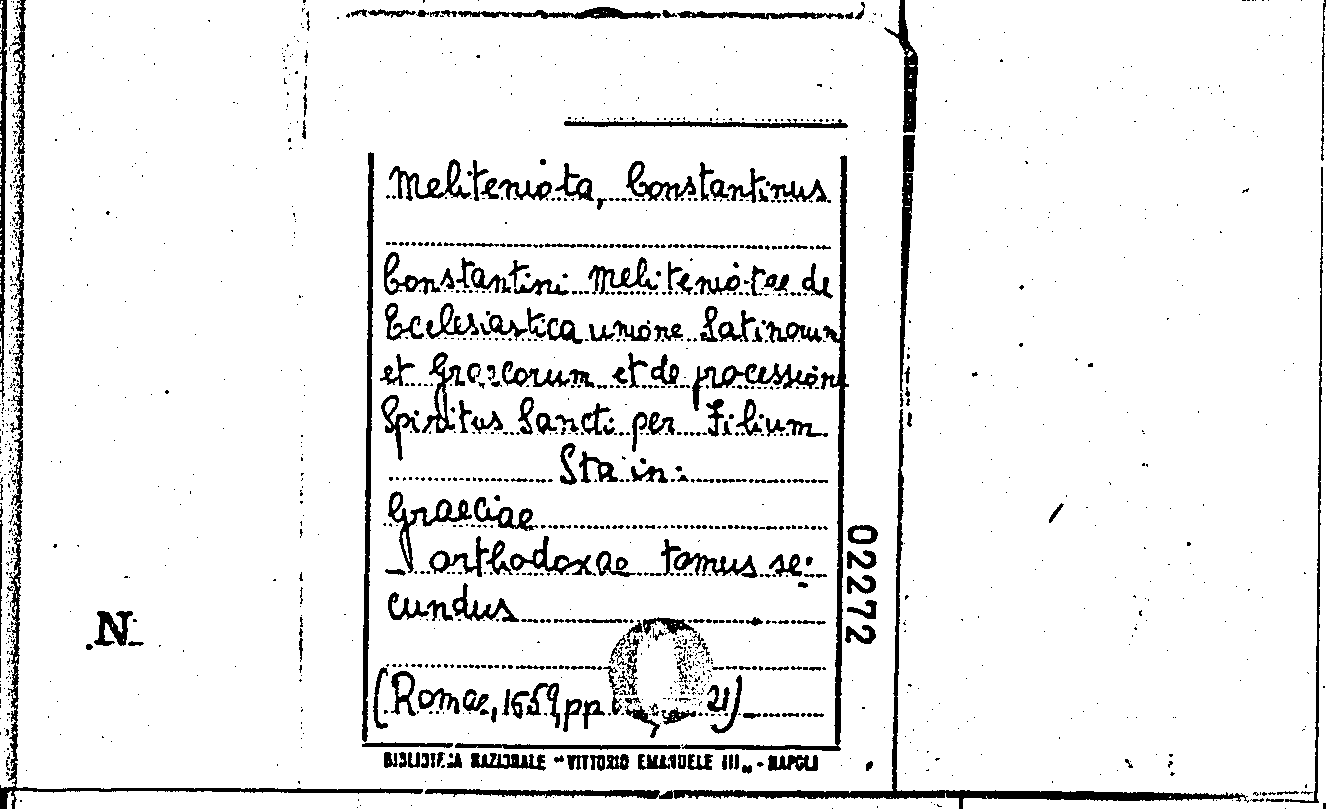 Meliteniota, Constantinus
Constantini Meliteniotae de
Ecclesiastica unione Latinorum
et Graecorum et de processione
Spiritus Sancti per Filium
Sta in:
Graeciae
orthodoxae tomus se-
cundus
N.
(Romae, 1659, pp 21)
BIBLIOTECA NAZIONALE "VITTORIO EMANUELE III„ - NAPOLI
02272